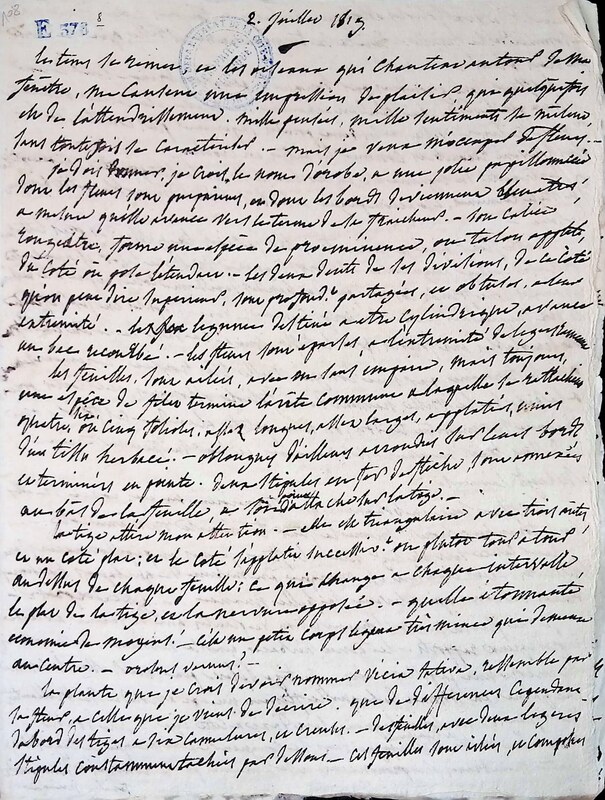 108
E 378
8
2. juillet 1819.
le tems se ranime et les oiseaux qui chantent autour de ma
fenêtre, me causent une impression de plaisir, qui quelquefois
est de l'attendrissement. mille pensées, mille sentiments se mêlent,
sans toutefois se caractériser. - mais je veux m'occuper de fleurs.-
je dois donner, je crois, le nom d'orobe, a une jolie papillonacée
dont les fleurs sont purpurines, et dont les bords deviennent bleuatres,
a mesure quelle avance vers le terme de sa fraicheur. - son calice,
rougeâtre, forme une espèce de proeminence, ou talon applati,
du coté ou pose l'étendard. - les deux dents de ses divisions, de ce coté
qu'on peut dire superieur, sont profond.t partagées, et obtuses, a leur
extremité. - le legume destiné a etre cylindrique, avance
un bec recourbé. - les fleurs sont eparses, a l'extremité de legers
les feuilles, sont ailées, avec ou sans impaire, mais toujours,
une espèce de filet termine l'arrête commune a laquelle se rattachent
quatre, ou cinq folioles, assez longues, assez larges, applaties, unies
d'un tissu herbacé. - oblongues d'ailleurs arrondies sur leurs bords
et terminées en pointe. deux stipules en fer de fleche, sont
au bas de la feuille a son point d'attache sur la tige. -
la tige attire mon attention. - elle est triangulaire avec trois
et un coté plat; et le coté s'applatit successiv.t ou plutot tour a tour
au dessus de chaque feuille; ce qui change a chaque intervalle
le plat de la tige, et la nervure opposée. - quelle étonnante
economie de moyens! - c'est un petit corps ligneux très mince qui demeure
au centre. - orobus vernus? -
la plante que je crois devoir nommer vicia sativa, ressemble par
sa fleur, a celle que je viens de decrire. que de differences cependant
d'abord des tiges a six cannelures, et creuses. - des feuilles, avec deux legeres
stipules constamment tachées par dessous. - ces feuilles sont ailées, et composées